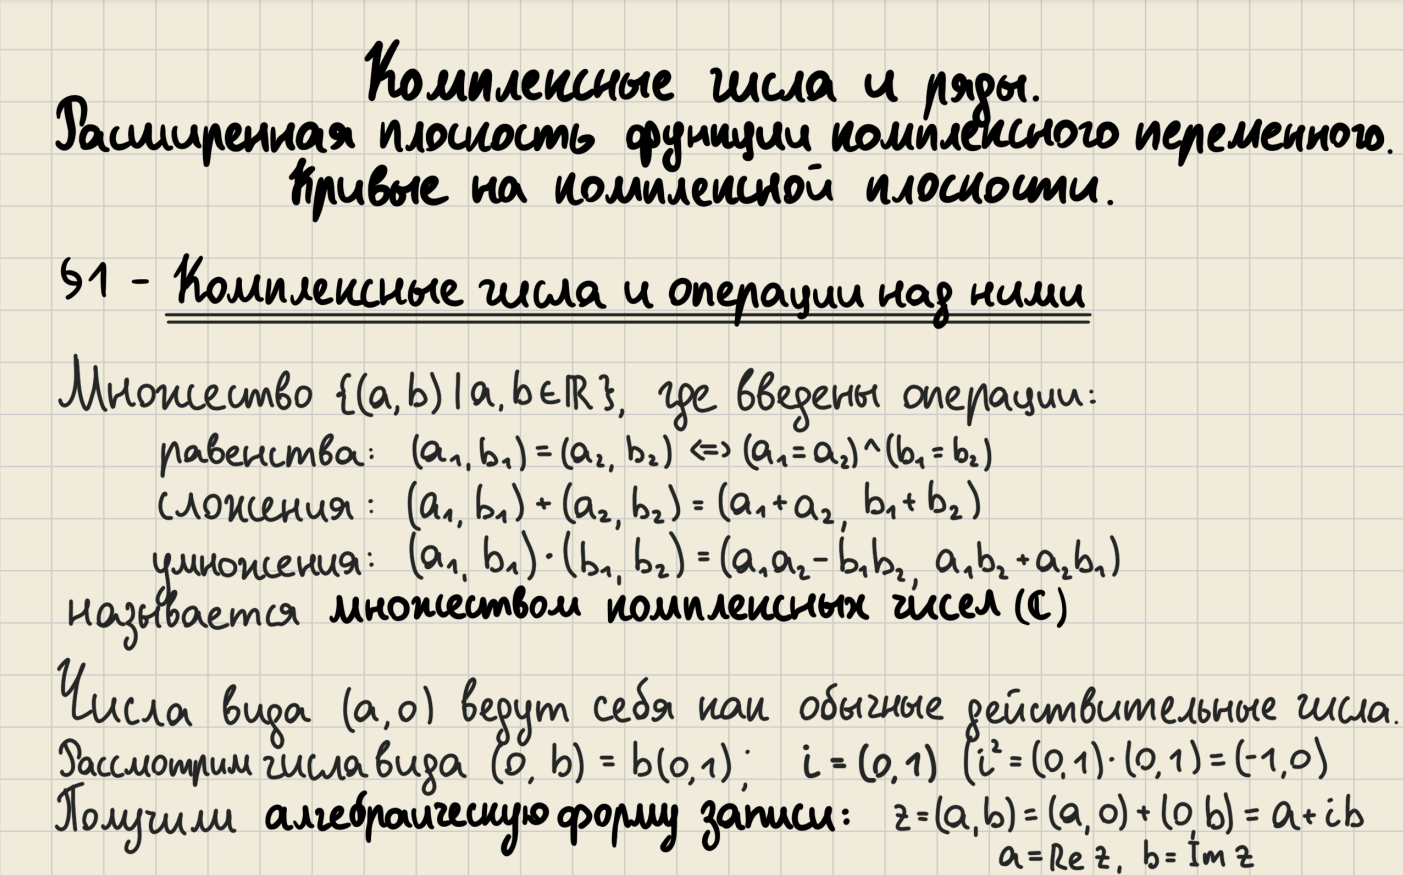 Комплексные числа и ряды.
Расширенная плоскость функции комплексного переменного.
Кривые на комплексной плоскости.
§1 - Комплексные числа и операции над ними
Множество {(a,b) | a, b ∈ ℝ}, где введены операции:
равенства: (a₁, b₁) = (a₂, b₂) <=> (a₁ = a₂)^(b₁ = b₂)
сложения: (a₁, b₁) + (a₂, b₂) = (a₁ + a₂, b₁ + b₂)
умножения: (a₁, b₁) · (b₁, b₂) = (a₁a₂ - b₁b₂, a₁b₂ + a₂b₁)
называется множеством комплексных чисел (ℂ)
Числа вида (a,0) ведут себя как обычные действительные числа.
Рассмотрим числа вида (0, b) = b(0,1); i = (0,1) (i² = (0,1)·(0,1) = (-1,0)
Получили алгебраическую форму записи: z = (a,b) = (a, 0) + (0, b) = a + ib
a = Re z, b = Im z